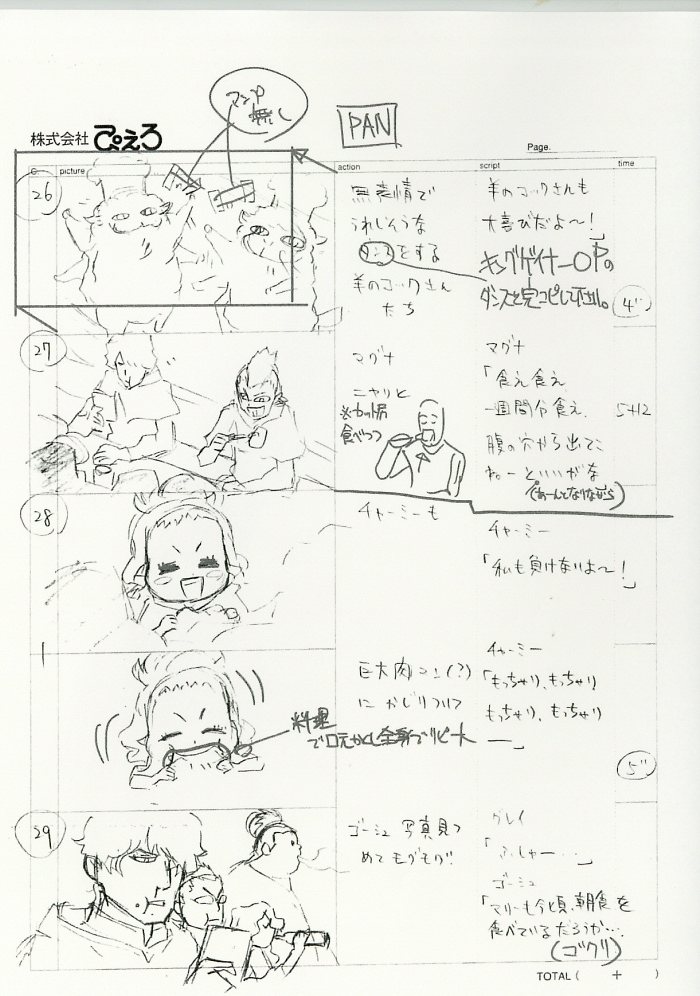 株式会社 ぴえろ
マンガ
無し
PAN
Page.
C. picture action script time
26
無表情で
うれしそうな
ダンスをする
羊のコックさん
たち
羊のコックさんも
大喜びだよ〜!」
キングゲイナーOPの
ダンスを完コピして下さい。
4"
27
マグナ
ニヤリと
食べつつ
マグナ
「食え食え
一週間分食え、
腹の穴から出てこ
ねーといいがな
(あーんとなりながら)
5+12
28
チャーミーも
チャーミー
「私も負けないよ〜!」
巨大肉マン(?)
に かじりついて
料理
で口元かくし全身でリピート
チャーミー
「もっちゃり、もっちゃり
もっちゃり、もっちゃり
ー」
5"
29
ゴーシュ 写真見つ
めてモグモグ!
グレイ
「ふしゅー…」
ゴーシュ
「マリーも今頃、朝食を
食べているだろうか…、
(ゴクリ)
TOTAL ( + )